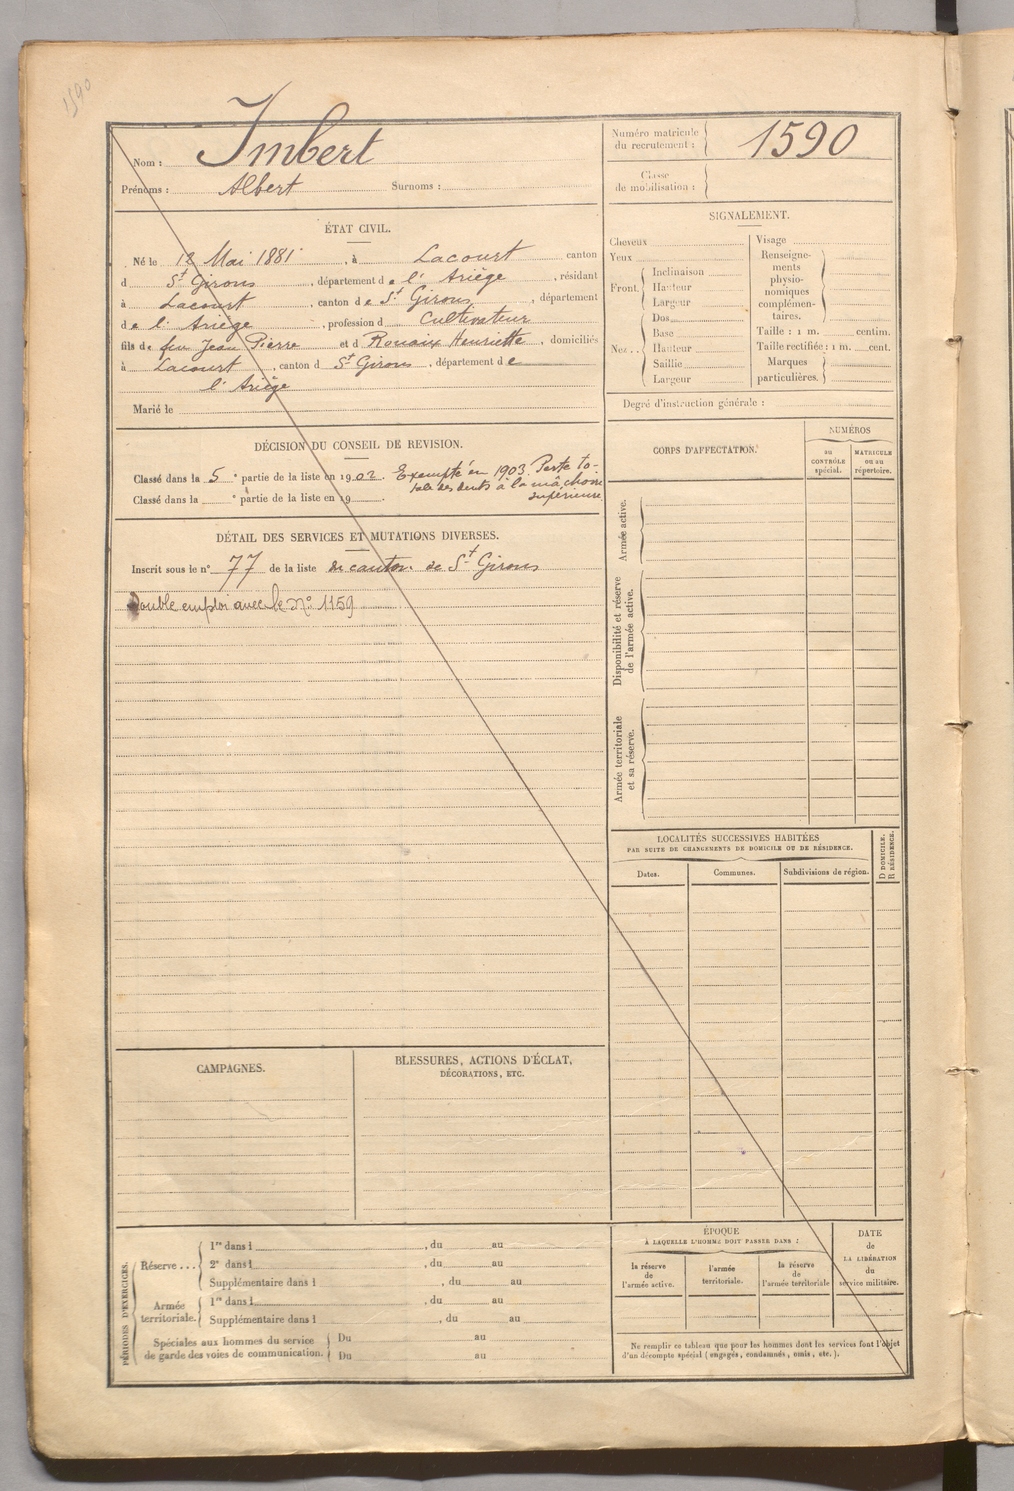 1590
Nom : Imbert
Prénoms : Albert Surnoms :
Numéro matricule du recrutement : 1590
Classe de mobilisation :
ÉTAT CIVIL.
Né le 12 Mai 1881, à Lacourt canton
d St Girons, département de l'Ariège, résidant
à Lacourt, canton de St Girons, département
de l'Ariège, profession d Cultivateur
fils de feu Jean Pierre et d Rouaux Henriette, domiciliés
à Lacourt, canton d St Girons, département de
l'Ariège
Marié le
DÉCISION DU CONSEIL DE REVISION.
Classé dans la 5e partie de la liste en 1902. Exempté en 1903. Perte to-
tale des dents à la mâchoire
Classé dans la e partie de la liste en 19 supérieure
DÉTAIL DES SERVICES ET MUTATIONS DIVERSES.
Inscrit sous le n° 77 de la liste du canton de St Girons
Double emploi avec le N° 1159
CAMPAGNES.
BLESSURES, ACTIONS D'ÉCLAT,
DÉCORATIONS, ETC.
PÉRIODES D'EXERCICES.
Réserve ...
1re dans l , du au
2e dans l , du au
Supplémentaire dans l , du au
Armée territoriale.
1re dans l , du au
Supplémentaire dans l , du au
Spéciales aux hommes du service
de garde des voies de communication.
Du au
Du au
SIGNALEMENT.
Cheveux
Yeux
Front.
Inclinaison
Hauteur
Largeur
Nez ..
Dos
Base
Hauteur
Saillie
Largeur
Visage
Renseigne-
ments
physio-
nomiques
complémen-
taires.
Taille : 1 m. centim.
Taille rectifiée : 1 m. cent.
Marques
particulières.
Degré d'instruction générale :
CORPS D'AFFECTATION.
NUMÉROS
au CONTRÔLE spécial.
MATRICULE ou au répertoire.
Armée active.
Disponibilité et réserve
de l'armée active.
Armée territoriale
et sa réserve.
LOCALITÉS SUCCESSIVES HABITÉES
PAR SUITE DE CHANGEMENTS DE DOMICILE OU DE RÉSIDENCE.
D DOMICILE.
R RÉSIDENCE.
Dates. Communes. Subdivisions de région.
ÉPOQUE
À LAQUELLE L'HOMME DOIT PASSER DANS :
la réserve de l'armée active.
l'armée territoriale.
la réserve de l'armée territoriale
DATE de LA LIBÉRATION du service militaire.
Ne remplir ce tableau que pour les hommes dont les services font l'objet
d'un décompte spécial (engagés, condamnés, omis, etc.).